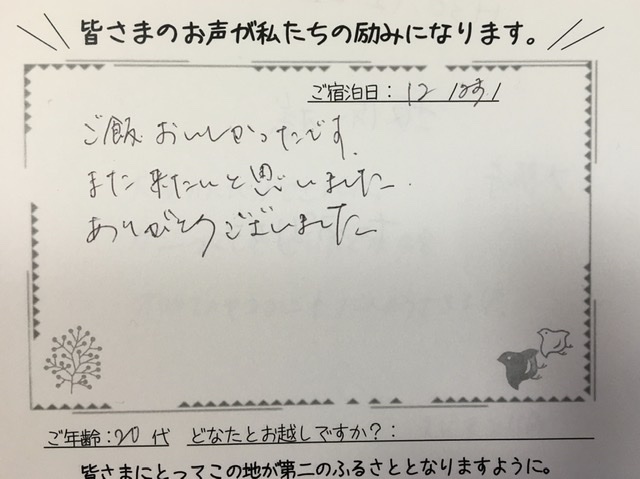 皆さまのお声が私たちの励みになります。
ご宿泊日：12
ご飯おいしかったです
また来たいと思いました.
ありがとうございました
ご年齢：20代 どなたとお越しですか？：
皆さまにとってこの地が第二のふるさととなりますように。